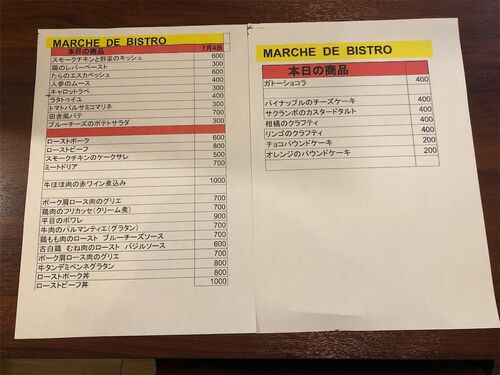 MARCHE DE BISTRO
本日の商品 7月4日
スモークチキンと野菜のキッシュ 600
鶏のレバーペースト 300
たらのエスカベッシュ 600
人参のムース 400
キャロットラペ 300
ラタトゥイユ 400
トマトバルサミコマリネ 300
田舎風パテ 700
ブルーチーズのポテトサラダ 300
ローストポーク 600
ローストビーフ 800
スモークチキンのケークサレ 500
ミートドリア 700
牛ほほ肉の赤ワイン煮込み 1000
ポーク肩ロース肉のグリエ 700
鶏肉のフリカッセ(クリーム煮) 700
平目のポワレ 900
牛肉のパルマンティエ(グラタン) 700
鶏もも肉のロースト ブルーチーズソース 700
古白鶏 むね肉のロースト バジルソース 600
ポーク肩ロース肉のグリエ 700
牛タンデミペンネグラタン 800
ローストポーク丼 800
ローストビーフ丼 1000
MARCHE DE BISTRO
本日の商品
ガトーショコラ 400
パイナップルのチーズケーキ 400
サクランボのカスタードタルト 400
柑橘のクラフティ 400
リンゴのクラフティ 400
チョコパウンドケーキ 200
オレンジのパウンドケーキ 200